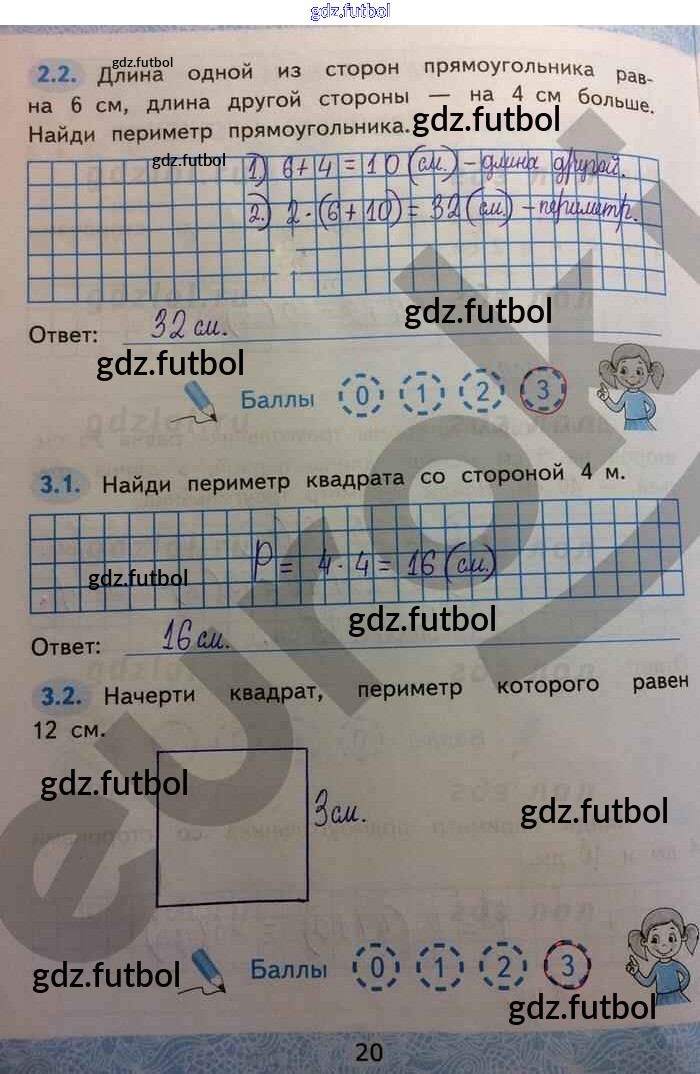 gdz.futbol
gdz.futbol
2.2. Длина одной из сторон прямоугольника рав-
на 6 см, длина другой стороны — на 4 см больше.
Найди периметр прямоугольника.
gdz.futbol
gdz.futbol
1) 6+4=10(см.)-длина другой.
2.) 2·(6+10)=32(см.)-периметр.
gdz.futbol
Ответ: 32 см.
gdz.futbol
Баллы 0 1 2 3
3.1. Найди периметр квадрата со стороной 4 м.
P = 4·4=16(см.)
gdz.futbol
gdz.futbol
Ответ: 16 см.
3.2. Начерти квадрат, периметр которого равен
12 см.
gdz.futbol
3см.
gdz.futbol
euroki
Баллы 0 1 2 3
gdz.futbol
gdz.futbol
20